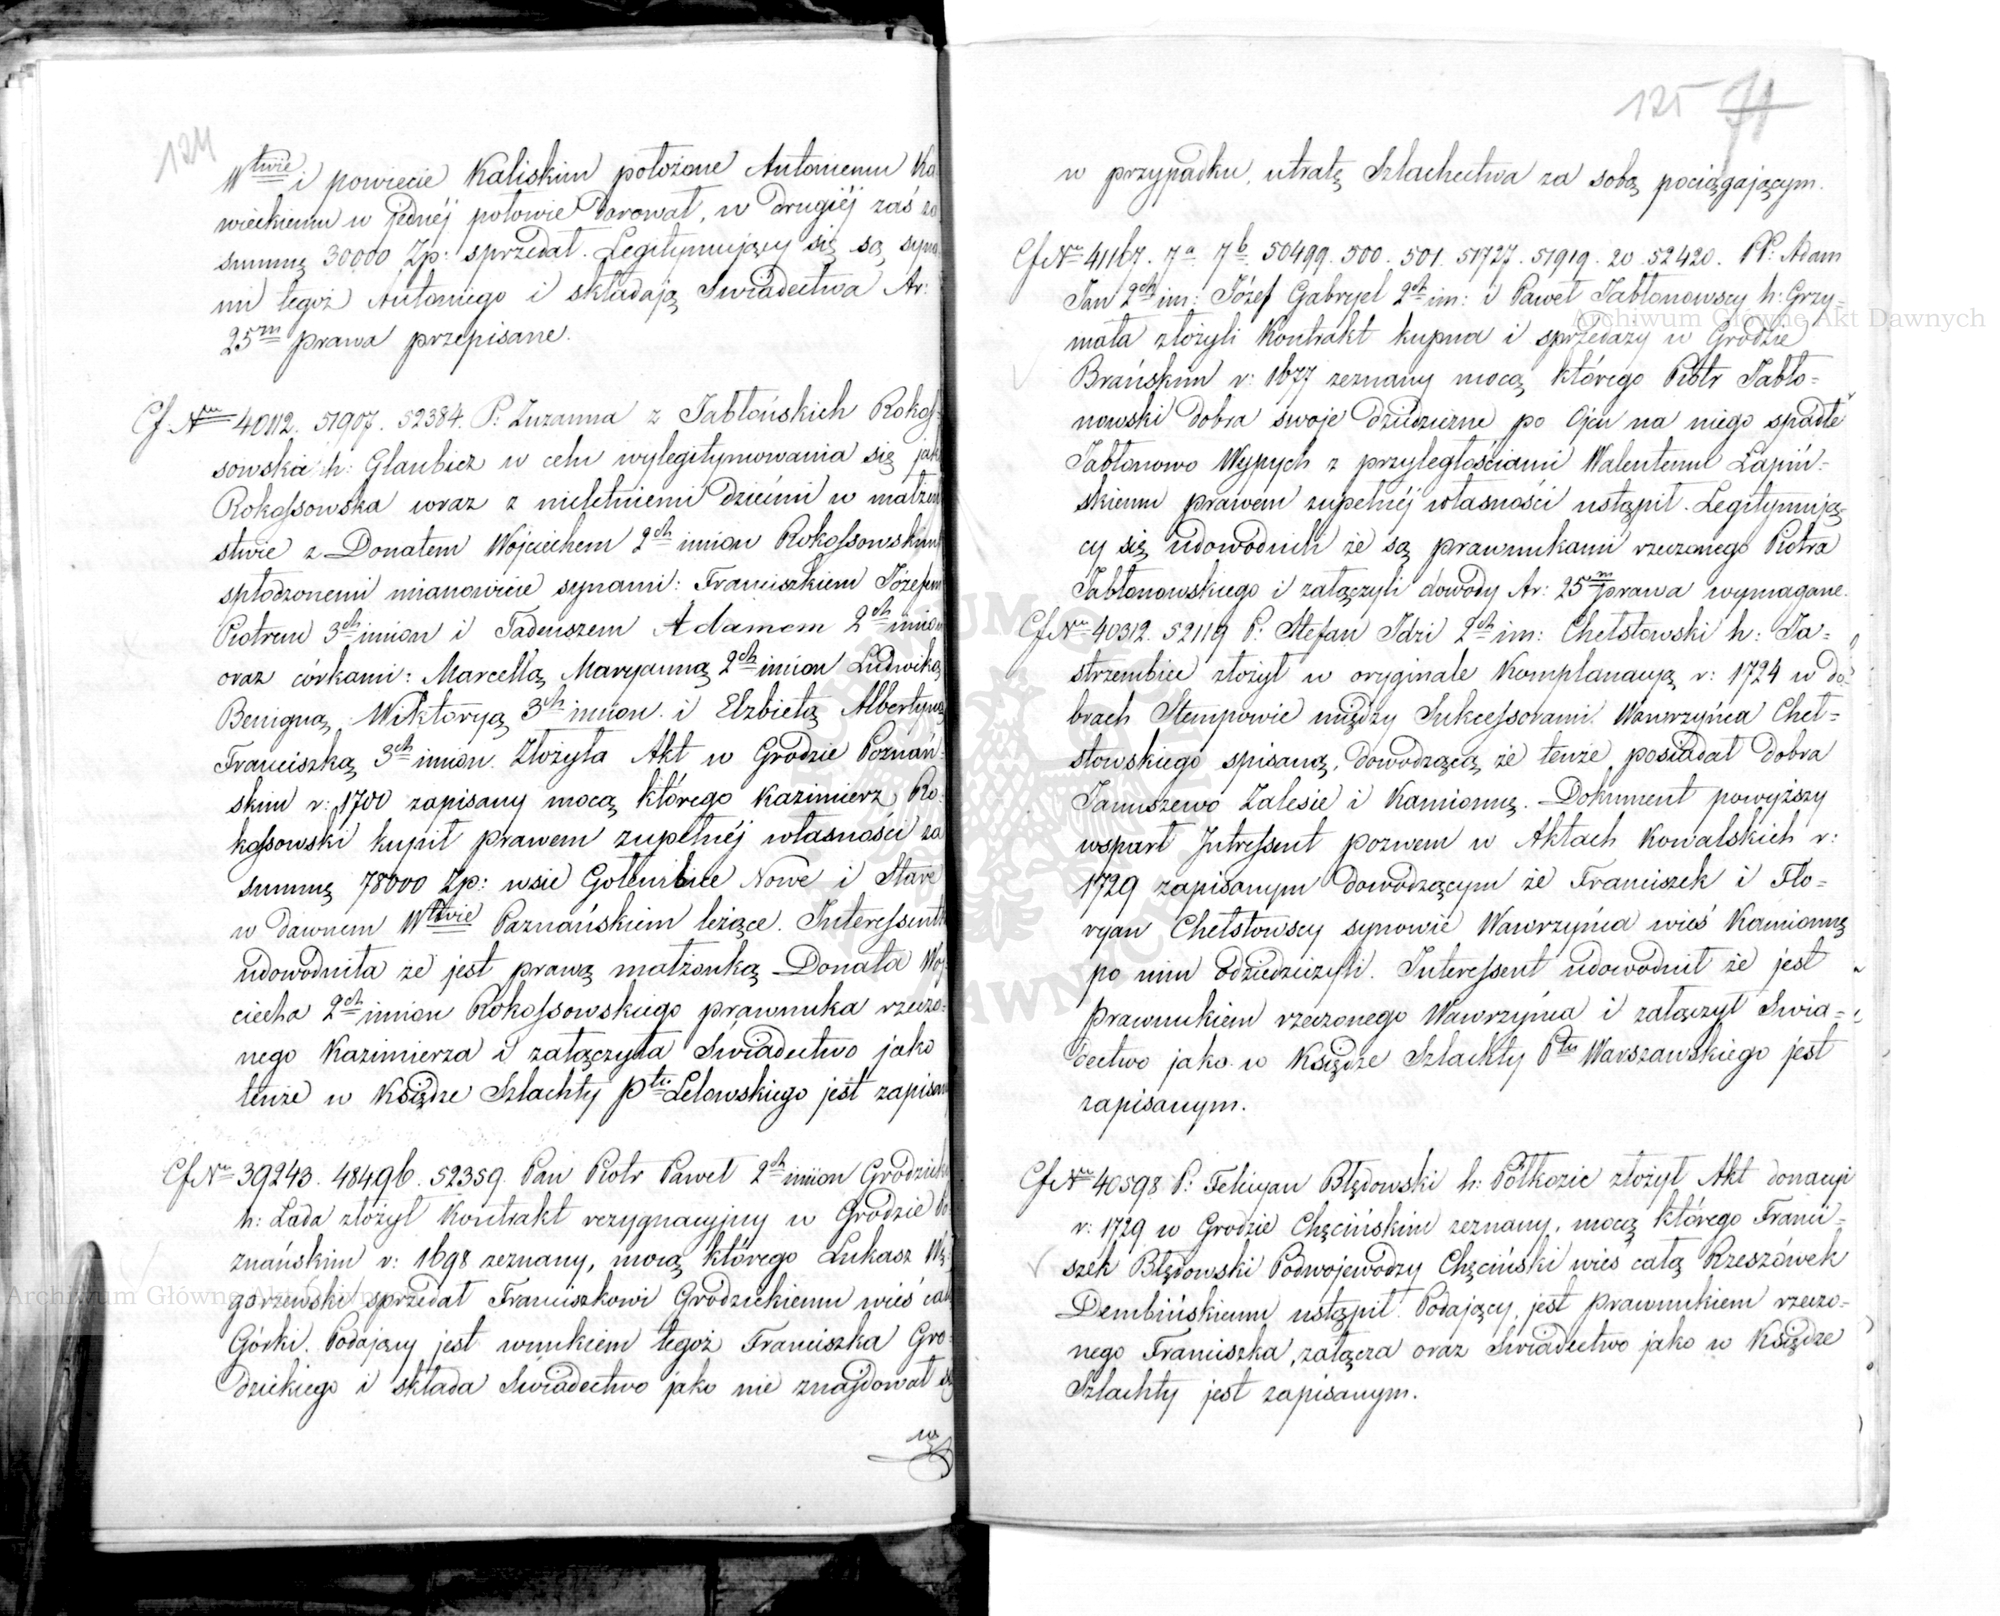 124
Wtwie i powiecie Kaliskim położone Antoniemu Ka
wieckiemu w jednéj połowie darował, w drugiéj zaś za
summę 30000 Zp: sprzedał. Legitymujący się są syna
mi tegoż Antoniego i składają Swiadectwa Ar:
25m prawa przepisane.
Cf. Nru 40112. 51907. 52384. P: Zuzanna z Jabłońskich Rokos-
sowska h: Glaubicz w celu wylegitymowania się jako
Rokossowska wraz z nieletniemi dziećmi w małżeń
stwie z Donatem Wojciechem 2ch imion Rokossowskim
spłodzonemi mianowicie synami: Franciszkiem Józefem
Piotrem 3ch imion i Tadeuszem Adamem 2ch imion
oraz córkami: Marcellą Maryanną 2ch imion Ludwiką
Benigną Wiktoryą 3ch imion i Elzbietą Albertyną
Franciszką 3ch imion. Złożyła Akt w Grodzie Poznań-
skim r: 1700 zapisany mocą którego Kazimierz Ro-
kossowski kupił prawem zupełnéj własności za
summę 78000 Zp: wsie Golembice Nowe i Stare
w dawnem Wtwie Poznańskiem leżące. Interessentka
udowodniła ze jest prawą małżonką Donata Woj
ciecha 2ch imion Rokossowskiego prawnuka rzeczo-
nego Kazimierza i załączyła Świadectwo jako
tenże w Księdze Szlachty Ptu Lelowskiego jest zapisany
Cf Nru 39243. 48496. 52359. Pan Piotr Paweł 2ch imion Grodzicki
h: Łada złożył Kontrakt rezygnacyjny w Grodzie Po
znańskim r: 1698 zeznany, mocą którego Łukasz Wę-
gorzewski sprzedał Franciszkowi Grodzickiemu wieś całą
Górki. Podający jest wnukiem tegoż Franciszka Gro
dzickiego i składa Swiadectwo jako nie znajdował się
w
125 71
w przypadku utratę Szlachectwa za sobą pociągającym.
Cf Nru 41167. 7a 7b 50499. 500. 501. 51727. 51919. 20. 52420. PP: Adam
Jan 2ch im: Józef Gabryel 2ch im: i Paweł Jabłonowscy h: Grzy-
mała złożyli Kontrakt kupna i sprzedaży w Grodzie
Brańskim r: 1677 zeznany mocą którego Piotr Jabło-
nowski dobra swoje dziedziczne po Ojcu na niego spadłe
Jabłonowo Wypych z przyległościami Walentemu Łapiń-
skiemu prawem zupełnéj własności ustąpił. Legitymują-
cy się udowodnili że są prawnukami rzeczonego Piotra
Jabłonowskiego i załączyli dowody Ar: 25m prawa wymagane.
Cf Nru 40312. 52119 P: Stefan Idzi 2ch im: Chełstowski h: Ja-
strzembiec złożył w oryginale Komplanacyą r: 1724 w do-
brach Stempowie między Sukcessorami Wawrzyńca Cheł-
stowskiego spisaną, dowodzącą że tenże posiadał dobra
Januszewo Zalesie i Kamionnę. Dokument powyższy
wsparł Intressent pozwem w Aktach Kowalskich r:
1729 zapisanym dowodzącym że Franciszek i Flo-
ryan Chełstowscy synowie Wawrzyńca wieś Kamionnę
po nim odziedziczyli. Interessent udowodnił że jest
prawnukiem rzeczonego Wawrzyńca i załączył Swia-
dectwo jako w Księdze Szlachty Ptu Warszawskiego jest
zapisanym.
Cf Nru 40598 P: Felicyan Błędowski h: Półkozic złożył Akt donacyi
r: 1729 w Grodzie Chęcińskim zeznany, mocą którego Franci-
szek Błędowski Podwojewodzy Chęciński wieś całą Rzeszówek
Dembińskiemu ustąpił. Podający jest prawnukiem rzeczo-
nego Franciszka, załącza oraz Swiadectwo jako w Księdze
Szlachty jest zapisanym.
Archiwum Główne Akt Dawnych